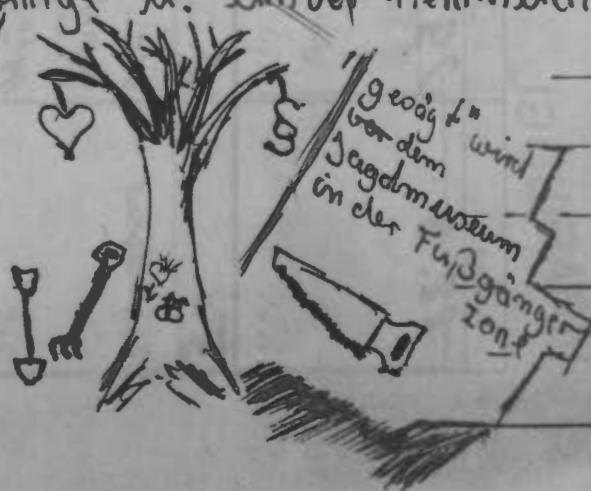 gesägt" wird
vor dem
Jagdmuseum
in der Fußgänger
zone